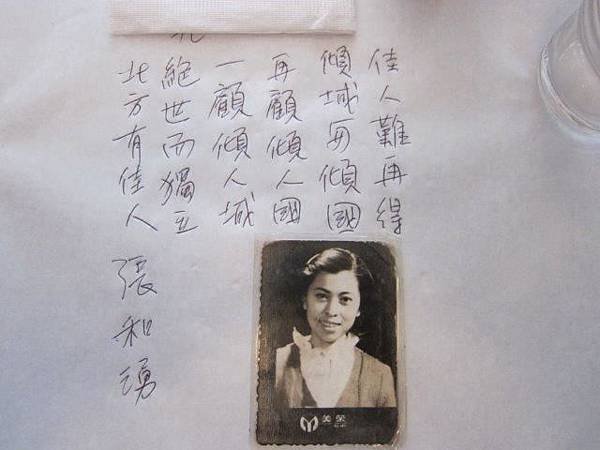 北方有佳人
絕世而獨立
一顧傾人城
再顧傾人國
傾城与傾國
佳人難再得
張和湧
美榮